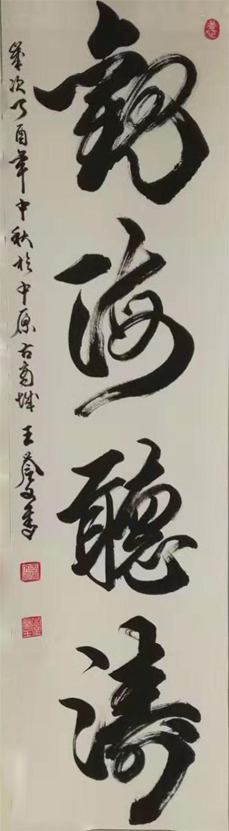 觀海聽濤
歲次乙酉年中秋於中原古商城 王